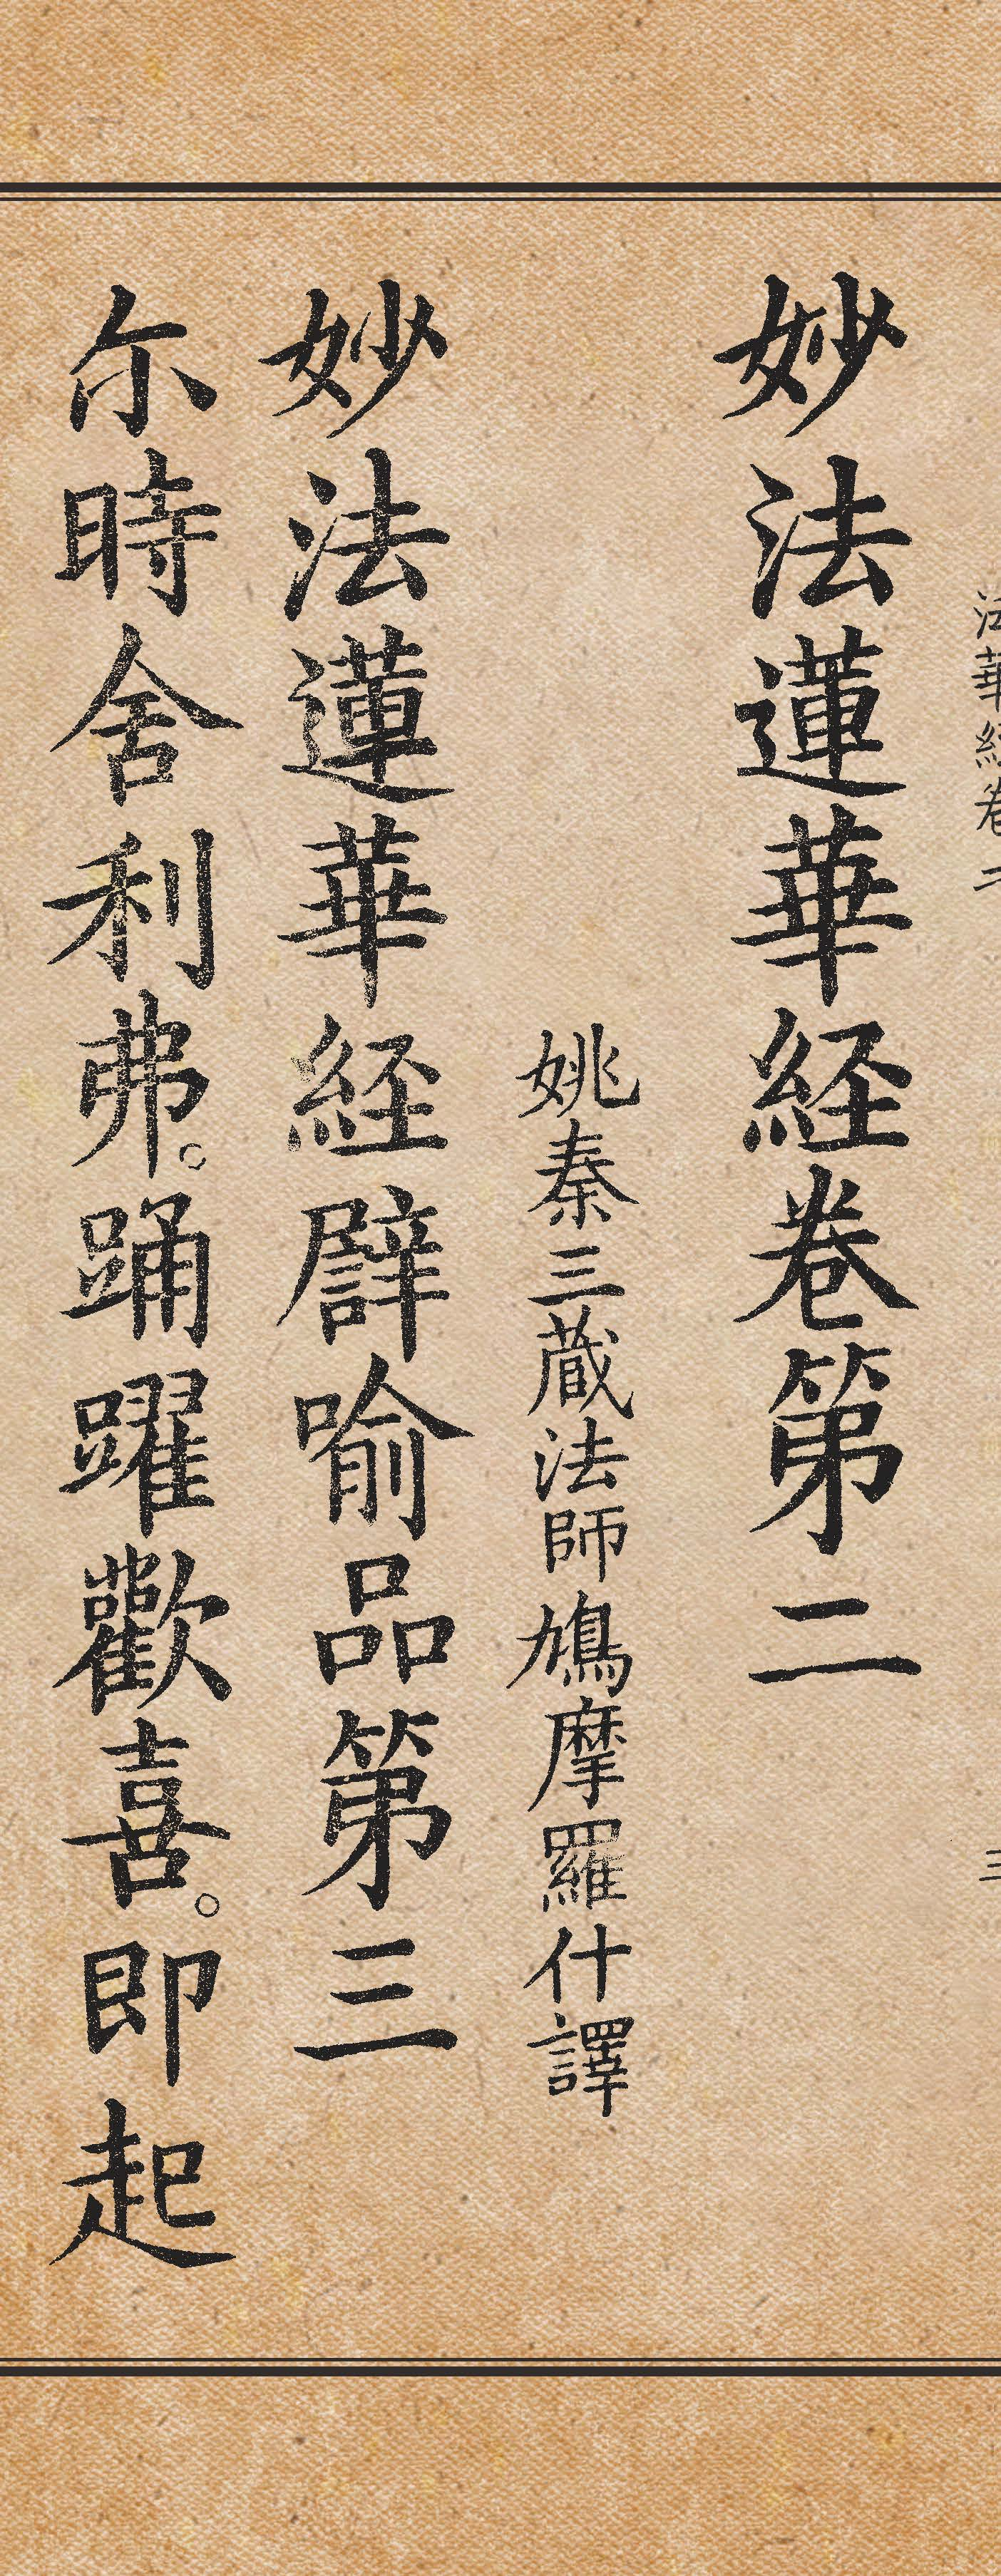 法華経卷二 三
妙法蓮華経卷第二
姚秦三蔵法師鳩摩羅什譯
妙法蓮華経譬喻品第三
尓時舍利弗。踊躍歡喜。即起